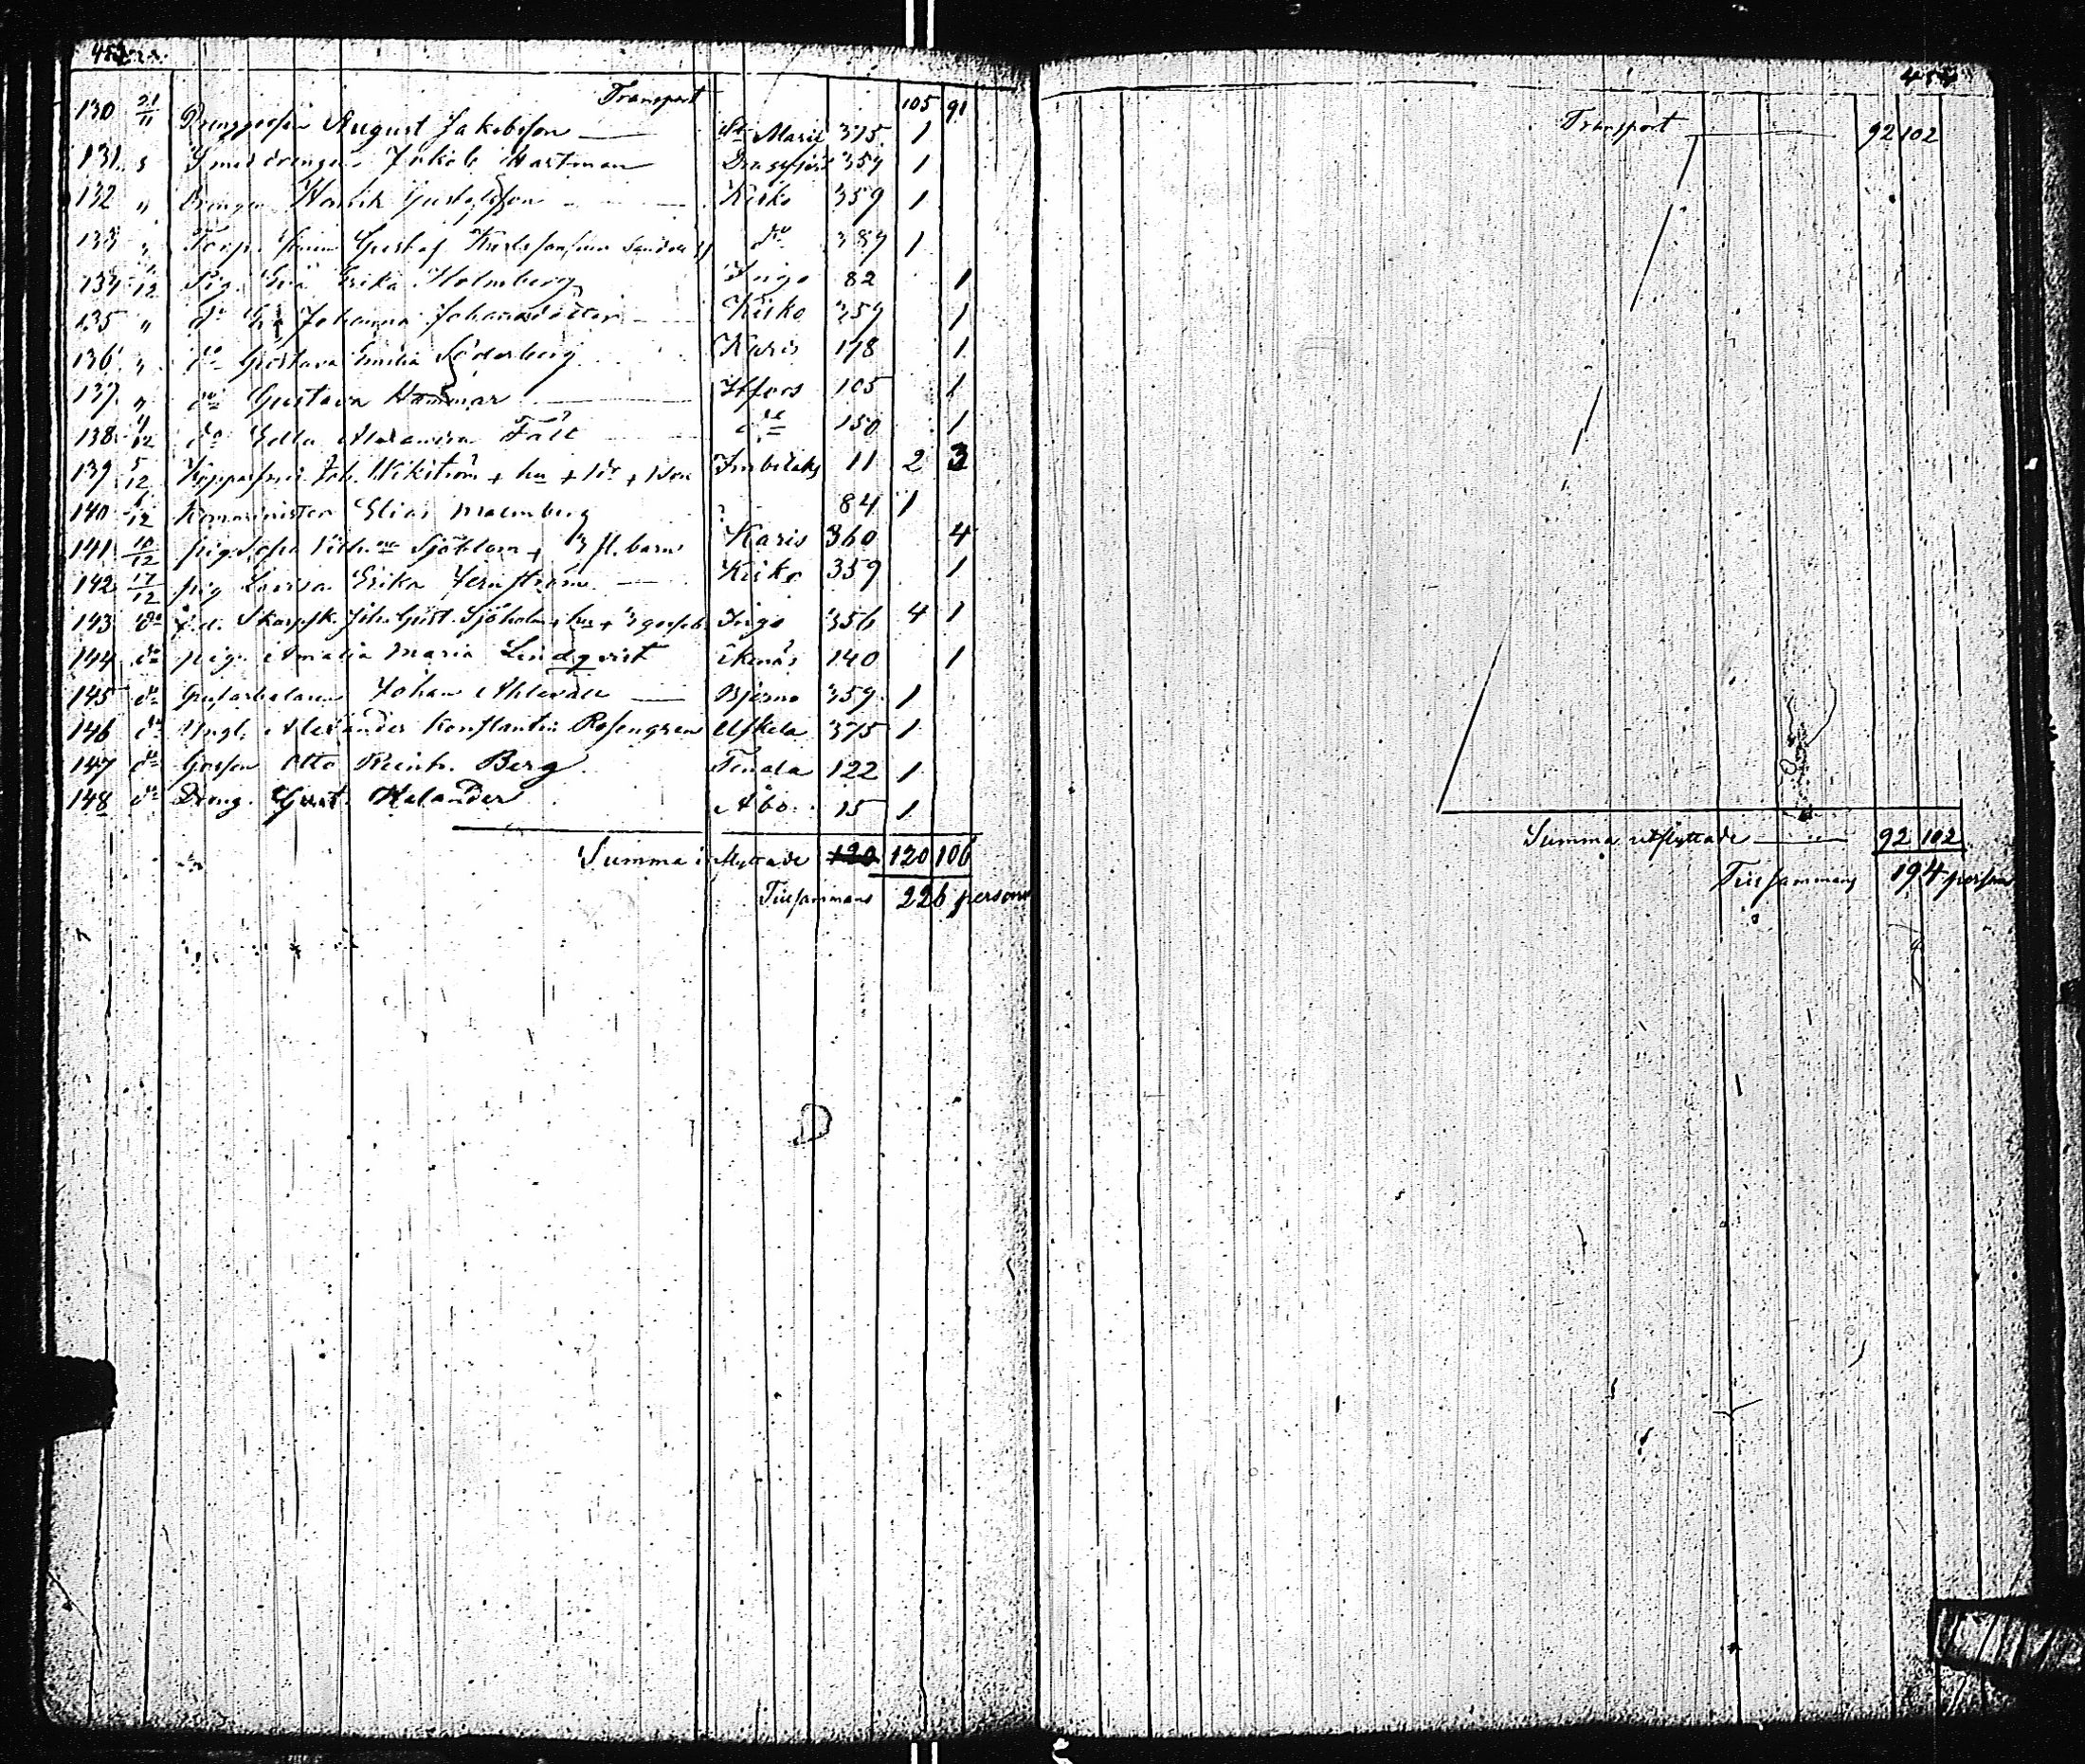 Transport 105 91
130 21/11 Drenggossen August Jakobsson St Marie 375 1
131 Smeddrengen Jakob Hartman Dragsfjärd 359 1
132 " Drengen Henrik Gustafsson Kisko 359 1
133 " Torp. Gustaf do 359 1
134 /12 Pig. Eva Erika Holmberg Ingo 82 1
135 " do Eva Johanna Johansdotter Kisko 359 1
136 " do Gustava Emilia Söderberg Karis 178 1
137 " do Gustava Hammar Hfors 105 1
138 /12 do Edla Alexandra Fält do 150 1
139 5/12 Joh. Wikström + hu + 1 dr + 1 son 11 2 3
140 /12 Komminister Elias Malmberg ? 84 1
141 10/12 pig. Sofia Vilh:na Sjöblom + 3 fl. barn Karis 360 4
142 17/12 pig Lovisa Erika Jernström Kisko 359 1
143 do f.d. Skarpsk. Joh. Gust. Sjöholm + hu + 3 gosseb. Ingo 356 4 1
144 do pig. Amalia Maria Lindqvist Ekenäs 140 1
145 do Johan Bjerno 359 1
146 do Yngl. Alexander Konstantin Rosengren Uskela 375 1
147 do Gossen Otto Reinh. Berg Tenala 122 1
148 do Dreng. Gust. Helander Åbo 15 1
Summa inflyttade 120 120 106
Tillsammans 226 personer
Transport 92 102
Summa utflyttade 92 102
Tillsammans 194 person